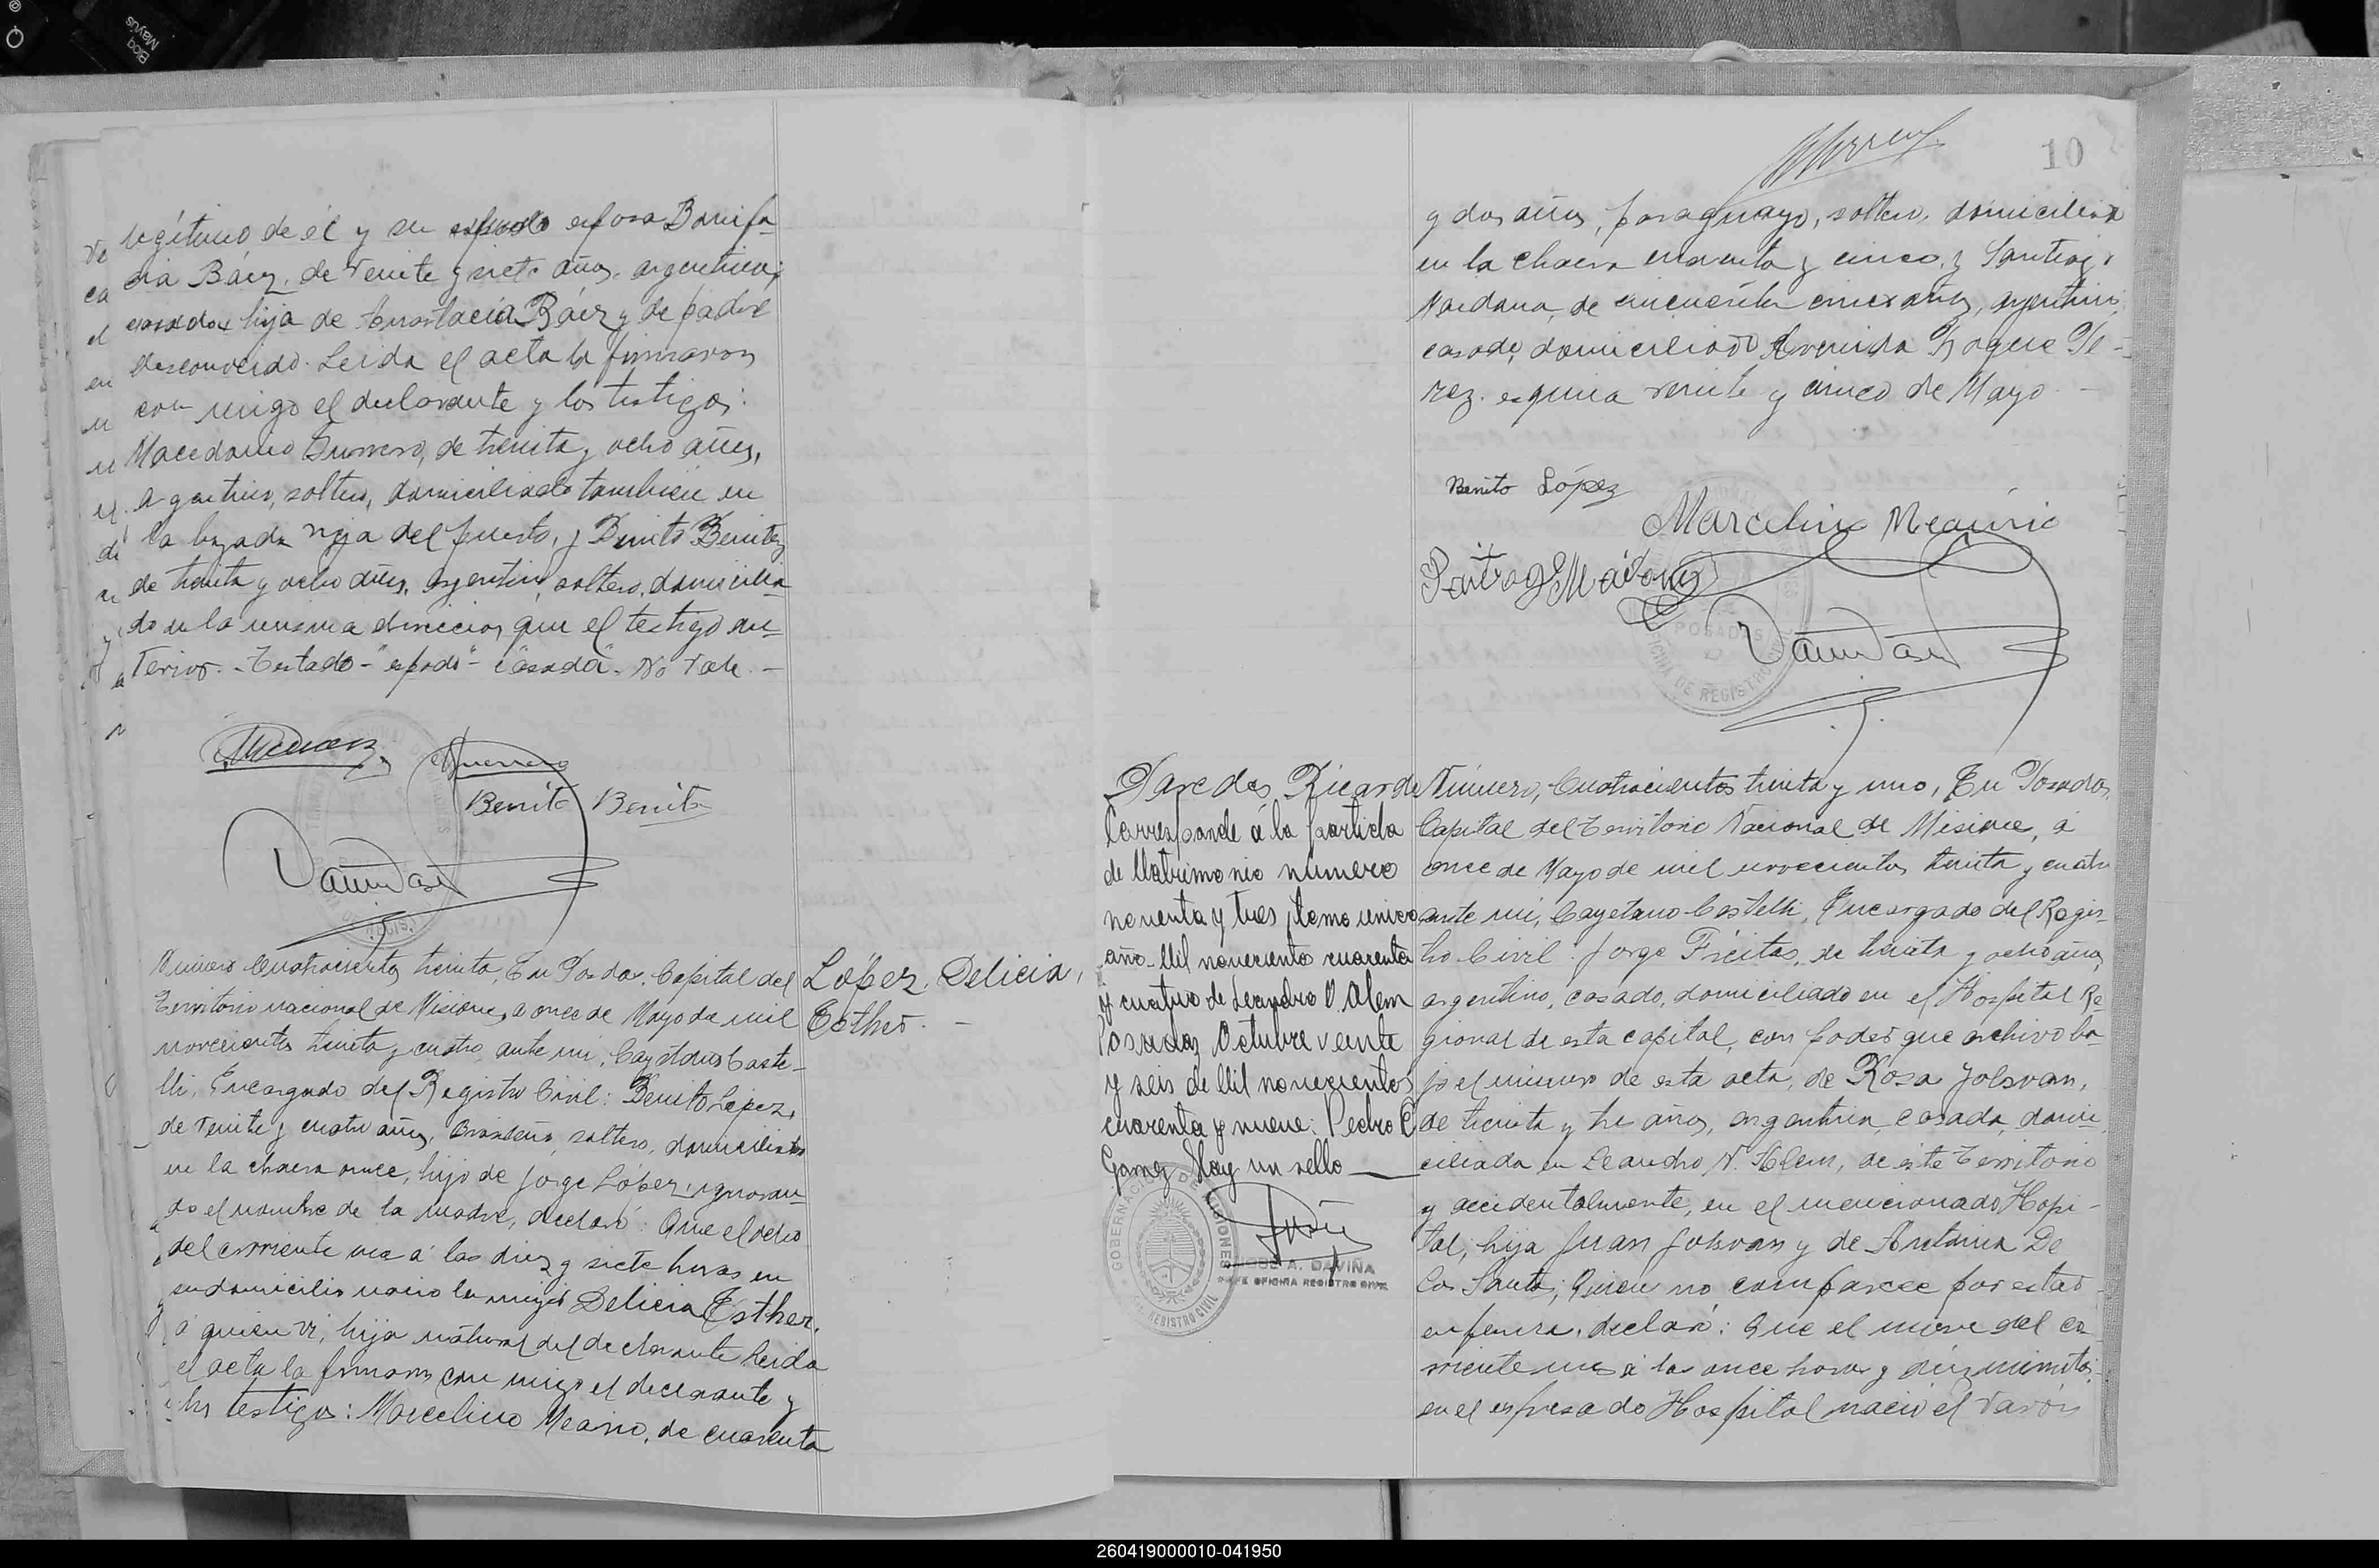 legítimo de él y su esposa Bonifa-
cia Báez, de veinte y siete años, argentina,
casada hija de Anastacia Báez y de padre
desconocido. Leida el acta la firmaron
con migo el declarante y los testigos:
Macedonio Guerrero, de treinta y ocho años,
argentino, soltero, domiciliado tambien en
la bajada vieja del puerto, y Benito Benitez
de treinta y ocho años, argentino, soltero, domicilia-
do en la misma direccion que el testigo an-
terior. - Testado - "esposo" - "casada" - No vale. -
Guerrero
Benito Benitez
Número Cuatrocientos treinta, En Posadas, Capital del
Territorio nacional de Misiones, a once de Mayo de mil
novecientos treinta y cuatro, ante mi, Cayetano Caste-
lli, Encargado del Registro Civil: Benito López,
de veinte y cuatro años, soltero, domiciliado
en la chacra once, hijo de Jorge López, ignoran-
do el nombre de la madre, declaró: Que el ocho
del corriente mes á las diez y siete horas en
su domicilio nacio la mujer Delicia Esther,
a quien vi, hija natural del declarante Leida
el acta la firmaron con migo el declarante y
los testigos: Marcelino Meaurio, de cuarenta
López, Delicia,
Esther. -
10
y dos años, paraguayo, soltero, domiciliado
en la chacra cuarenta y cinco, y Santiago
Maidana, de cincuenta cinco años, argentino,
casado, domiciliado Avenida Roque Pe-
rez esquina veinte y cinco de Mayo. -
Benito López
Marcelino Meaurio
Santiago Maidana
POSADAS
OFICINA DE REGISTRO
Paredes Ricardo
Corresponde á la partida
de Matrimonio número
noventa y tres, tomo unico
año Mil noveciento cuarenta
y cuatro de Leandro N. Alem
Posadas Octubre veinte
y seis de Mil novecientos
cuarenta y nueve: Pedro C
Gamez Hay un sello
GOBERNACION DE MISIONES
REGISTRO CIVIL
JOSE A. DAVIÑA
JEFE OFICINA REGISTRO CIVIL
Número, Cuatrocientos treinta y uno, En Posadas,
Capital del Territorio Nacional de Misiones, á
once de Mayo de mil novecientos treinta y cuatro
ante mi, Cayetano Castelli, Encargado del Regis-
tro Civil: Jorge Freitas, de treinta y ocho años,
argentino, casado, domiciliado en el Hospital Re-
gional de esta capital, con poder que archivo ba-
jo el número de esta acta, de Rosa Jolsvan,
de treinta y tres años, argentina, casada, domi-
ciliada en Leandro N. Alem, de este Territorio
y accidentalmente, en el mencionado Hospi-
tal, hija Juan Jolsvan y de Antonia De
los Santos; Quien no comparece por estar
enferma, declaró: Que el nueve del co-
rriente mes á las once horas y diez minutos,
en el espresado Hospital nació el varón
260419000010-041950